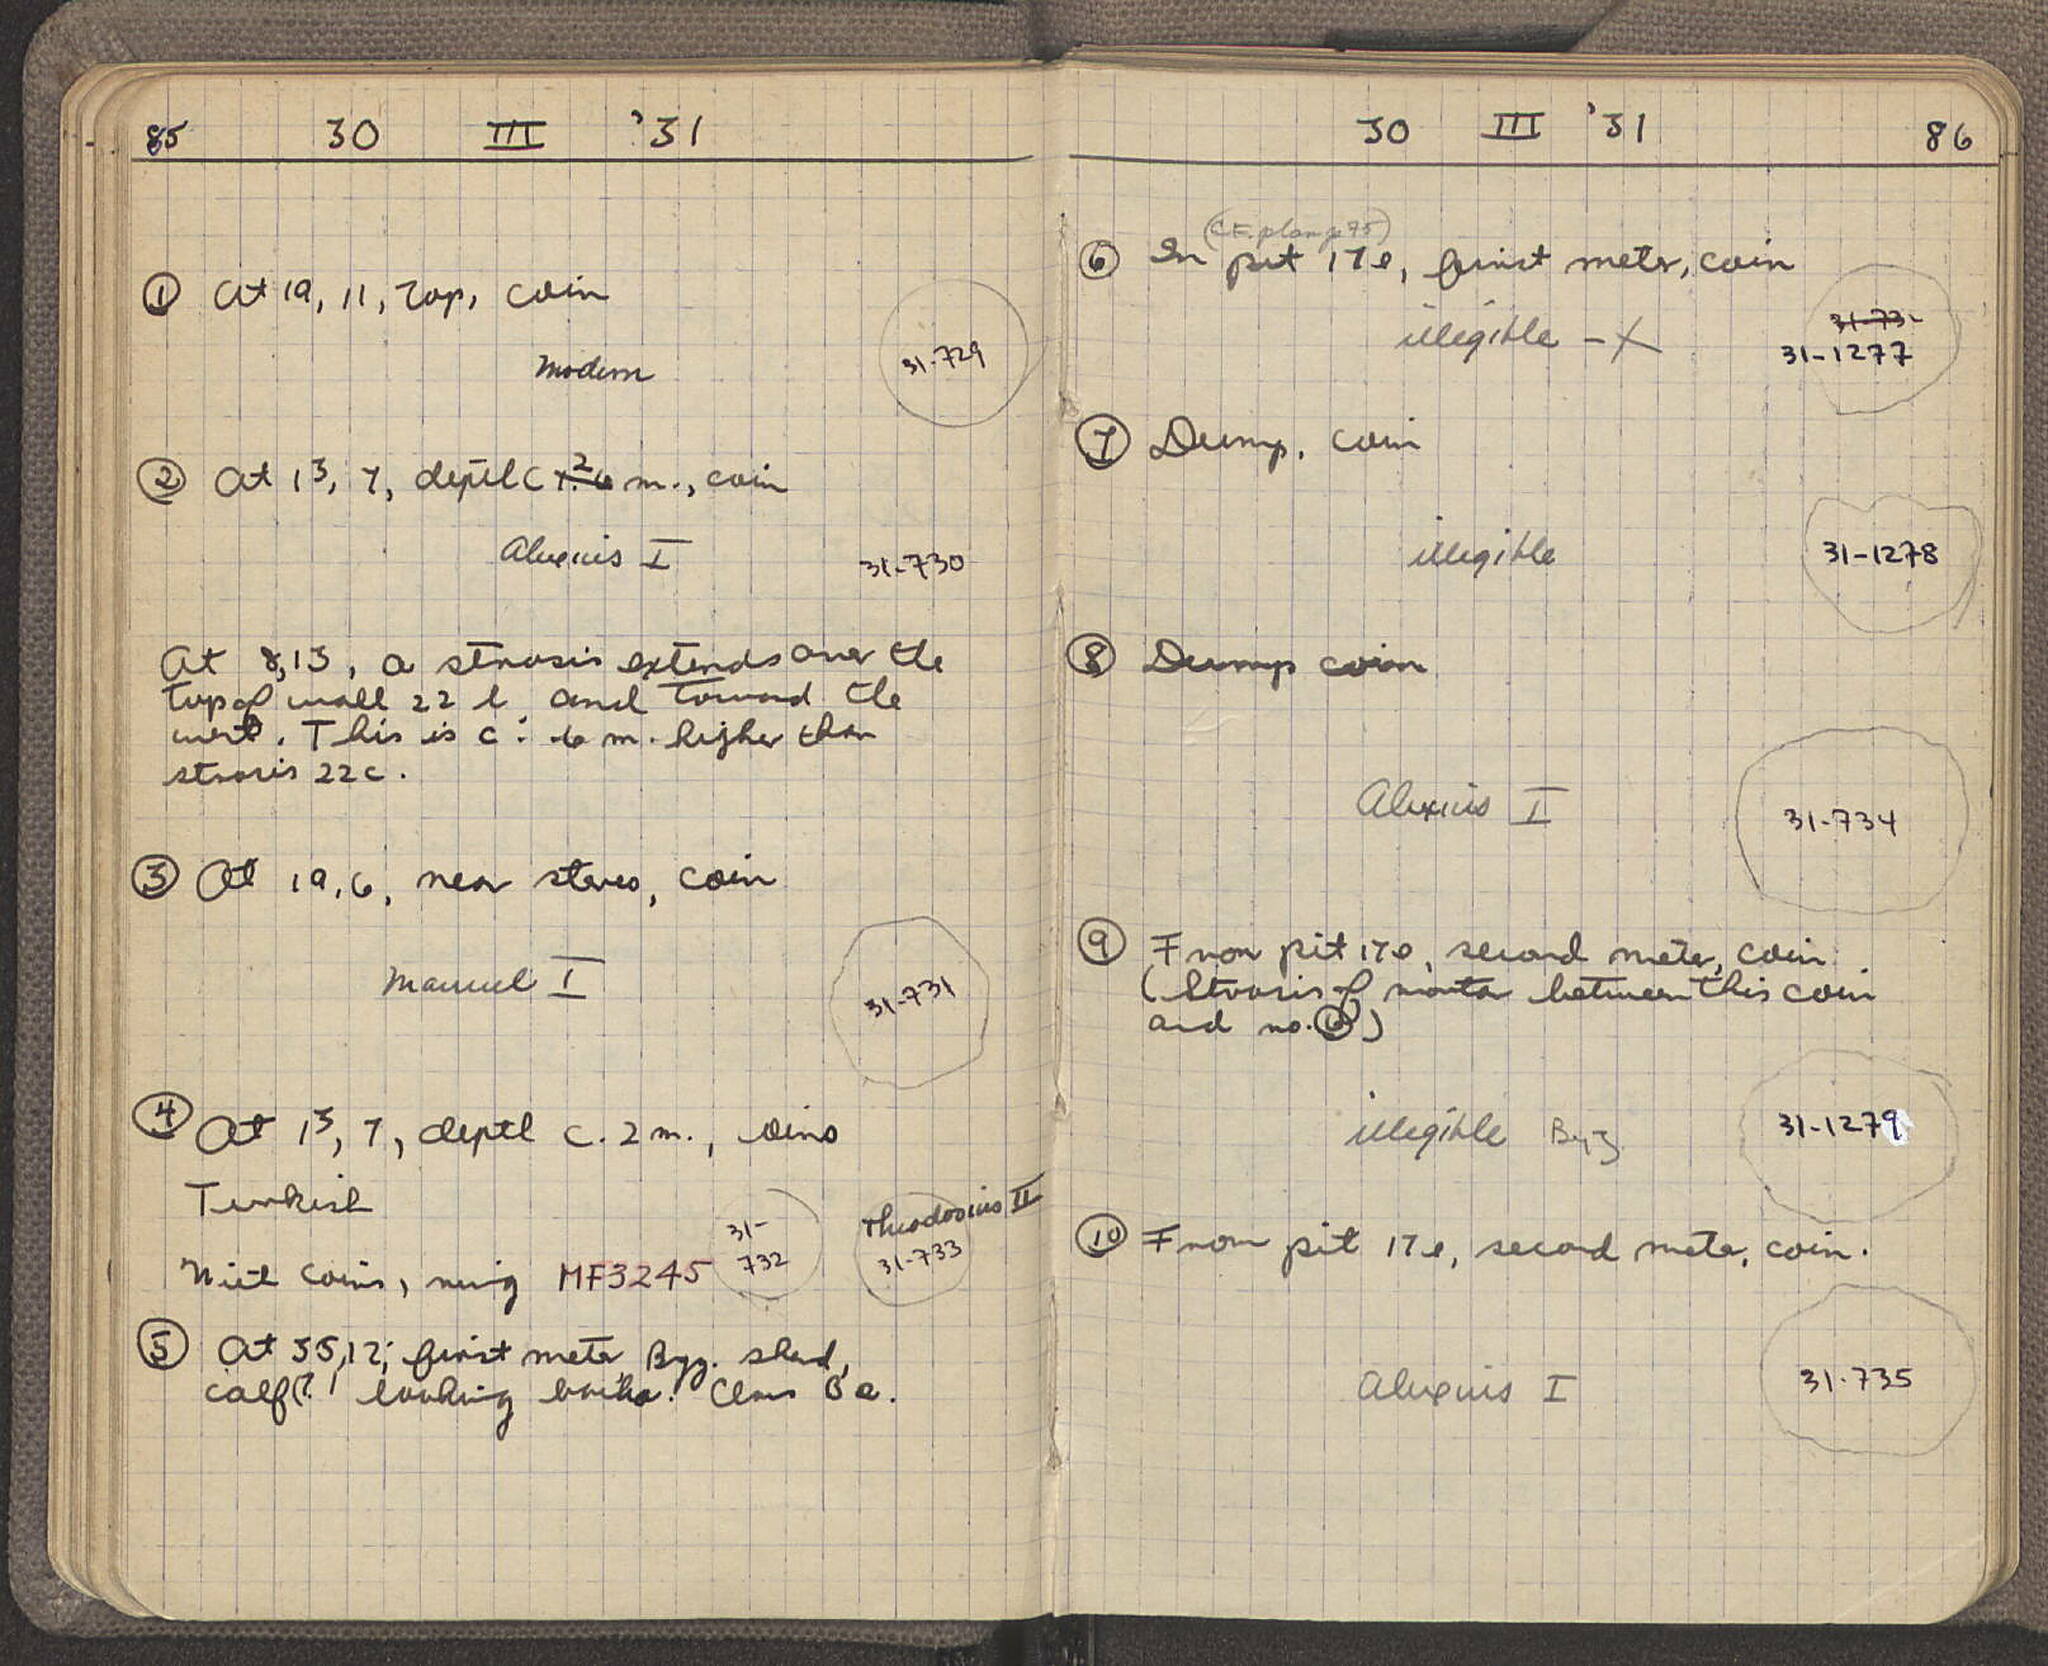 85 30 III '31
① At 19, 11, Top, coin
Modern
31-729
② At 13, 7, depth c 2 m., coin
Alexius I
31-730
At 8,13, a strosis extends over the
top of wall 22 l and toward the
west. This is c. .6 m. higher than
strosis 22c.
③ At 19, 6, near stereo, coin
Manuel I
31-731
④ At 13, 7, depth c. 2 m., coins
Turkish
31-732
Theodosius II
31-733
With coins, ring MF3245
⑤ At 35,12, first meter Byz. sherd,
calf(?) looking back. Class B a.
30 III '31 86
(CF. plan p 75)
⑥ In pit 17e, first meter, coin
illegible - X
31-73-
31-1277
⑦ Dump, coin
illegible
31-1278
⑧ Dump coin
Alexius I
31-734
⑨ From pit 17e, second meter, coin
(Strosis of mortar between this coin
and no. ⑥)
illegible Byz
31-1279
⑩ From pit 17e, second meter, coin.
Alexius I
31-735